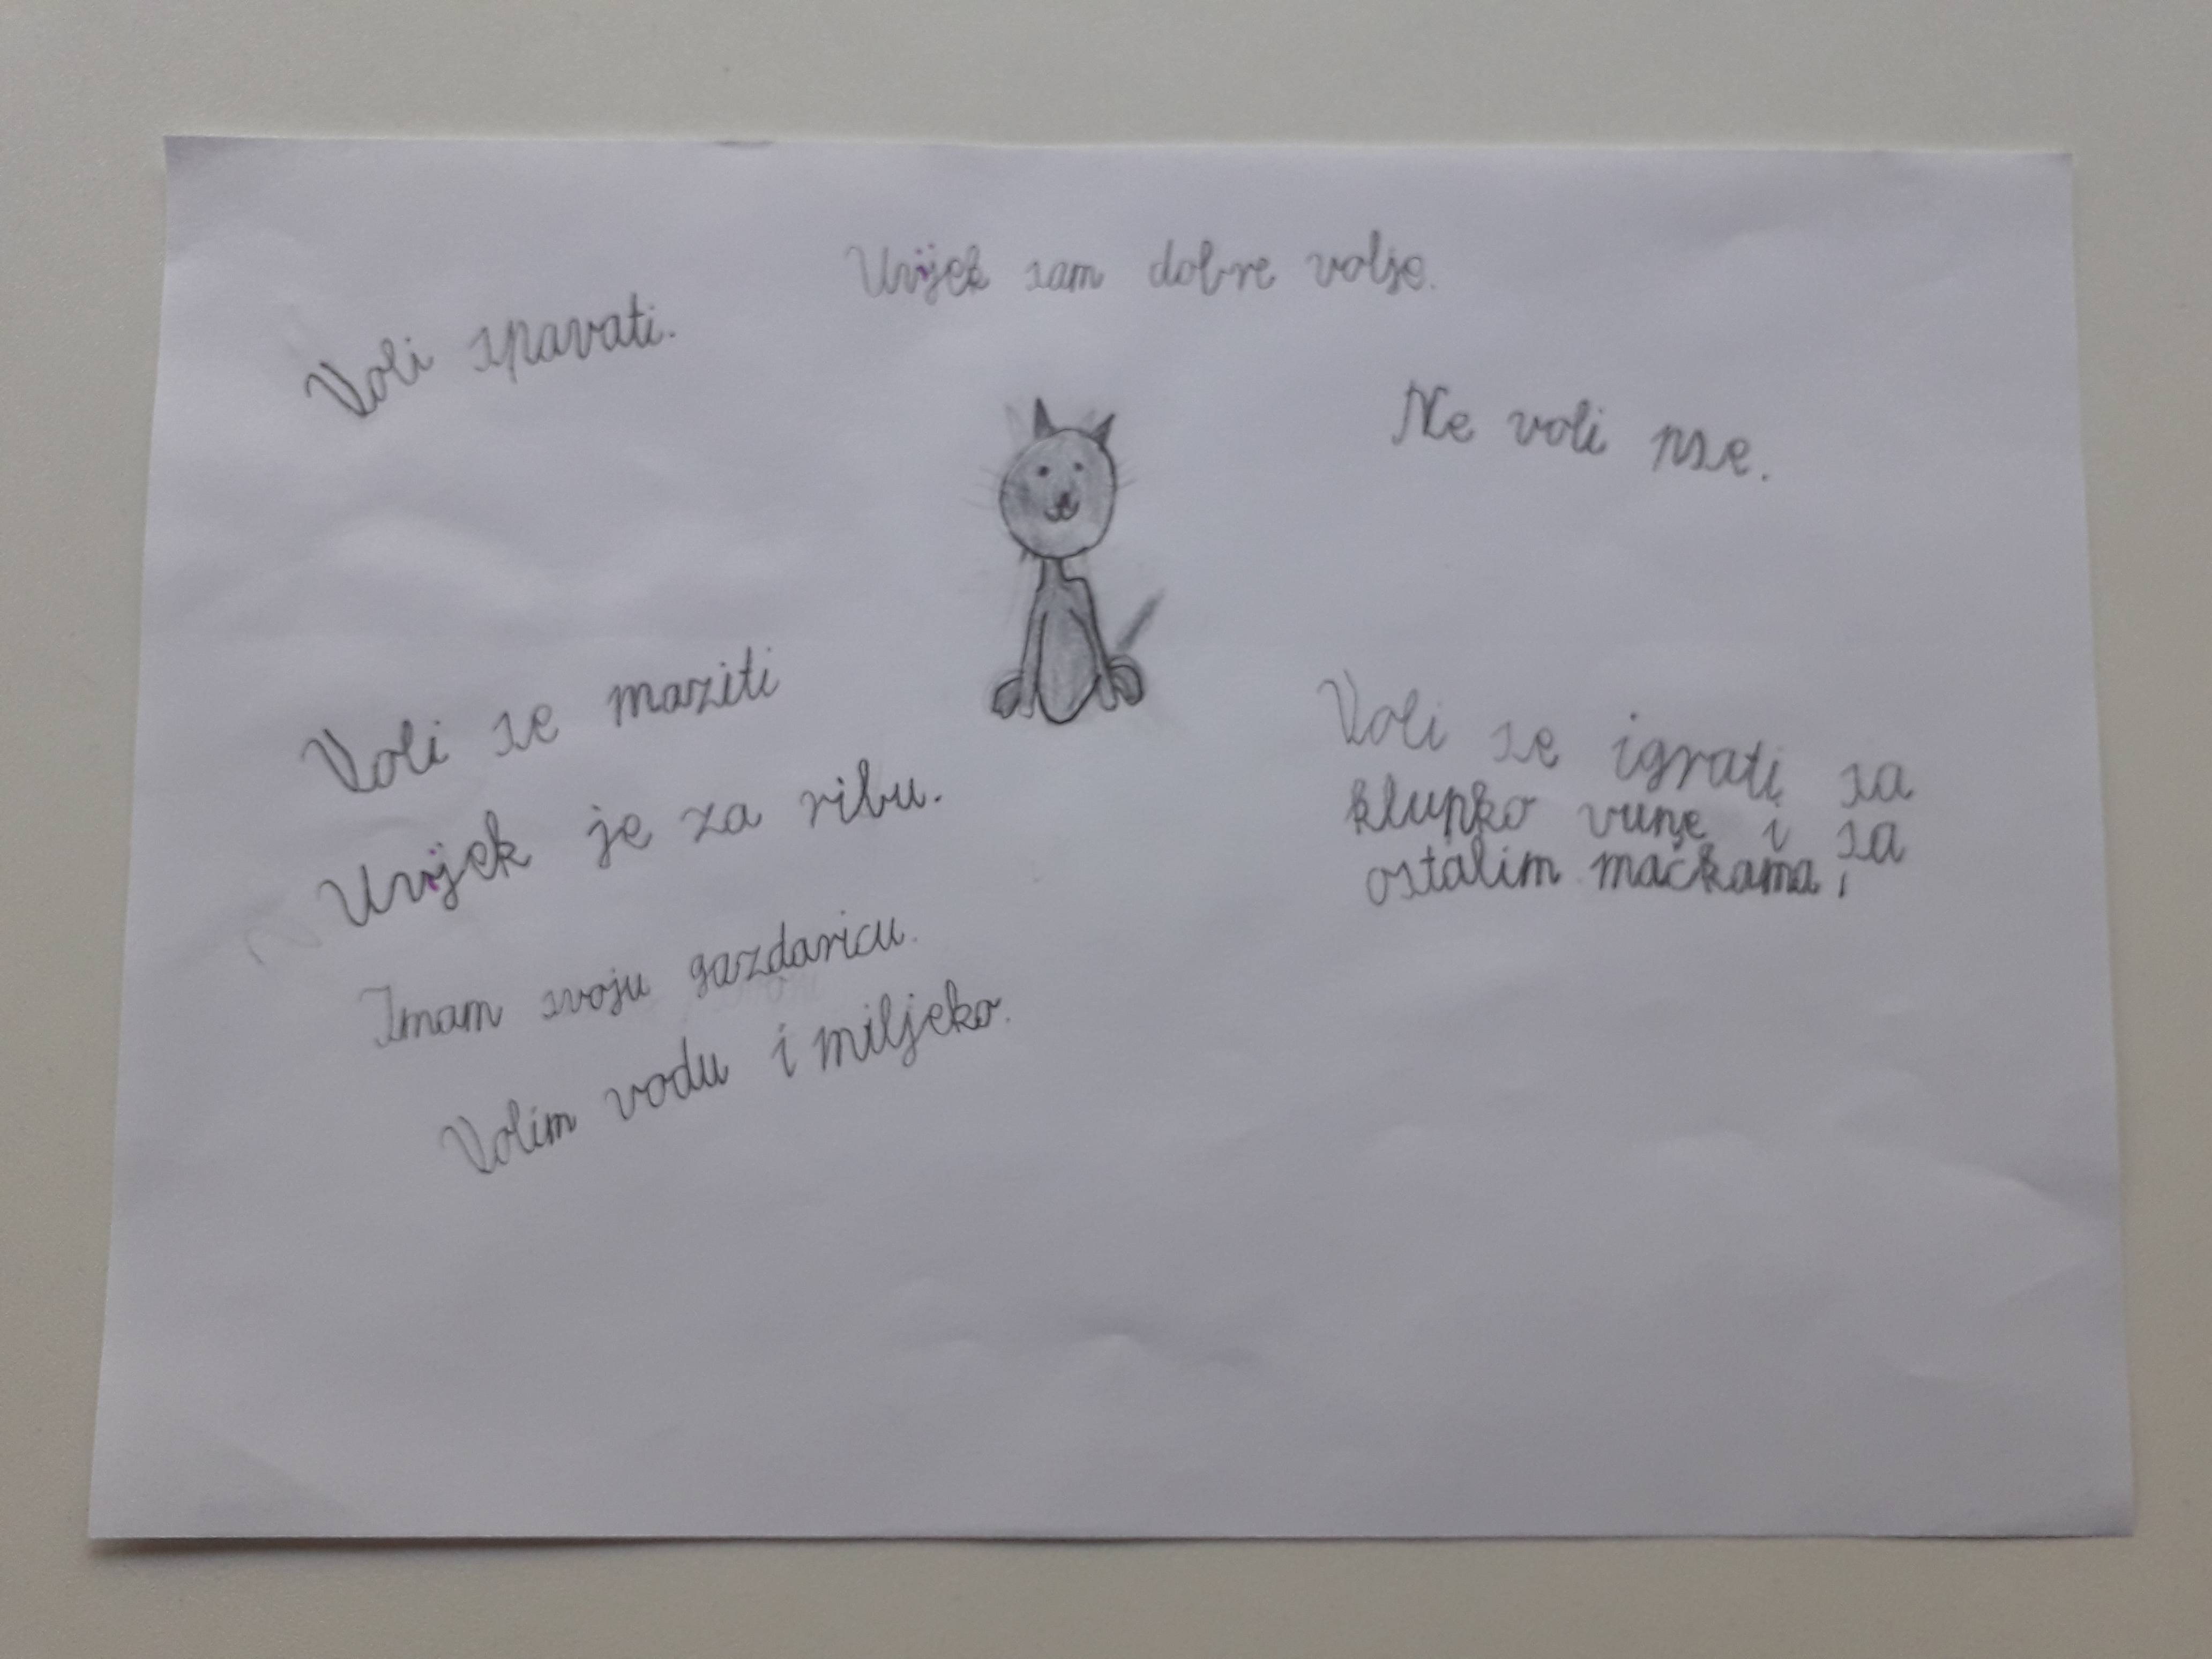 Uvijek sam dobre volje.
Voli spavati.
Ne voli pse.
Voli se maziti
Uvijek je za ribu.
Imam svoju gazdaricu.
Volim vodu i miljeko.
Voli se igrati sa
klupko vune i sa
ostalim mačkama.